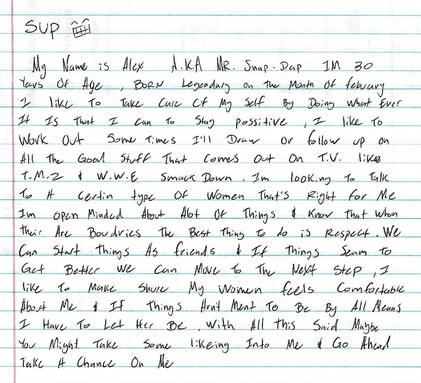 Sup
My Name is Alex A.K.A Mr. Snap-Dap IM 30
Years Of Age, BORN Legendary on The Month Of february
I like To Take Care Of My Self By Doing What Ever
It Is That I can To Stay possitive, I like To
Work Out Some Times I'll Draw or follow up on
All The Good Stuff That Comes Out On T.V. like
T.M.Z & W.W.E Smack Down. Im looking To Talk
To A Certin type Of Women That's Right for Me
Im open Minded About Alot Of Things & Know That when
Their Are Boudries The Best Thing To do is Respect. We
Can Start Things As friends & If Things Seam To
Get Better We Can Move To The Next Step, I
like To Make Shure My Women feels Comfortable
About Me & If Things Arnt Ment To Be By All Means
I Have To Let Her Be. With All This Said Maybe
You Might Take Some likeing Into Me & Go Ahead
Take A Chance On Me